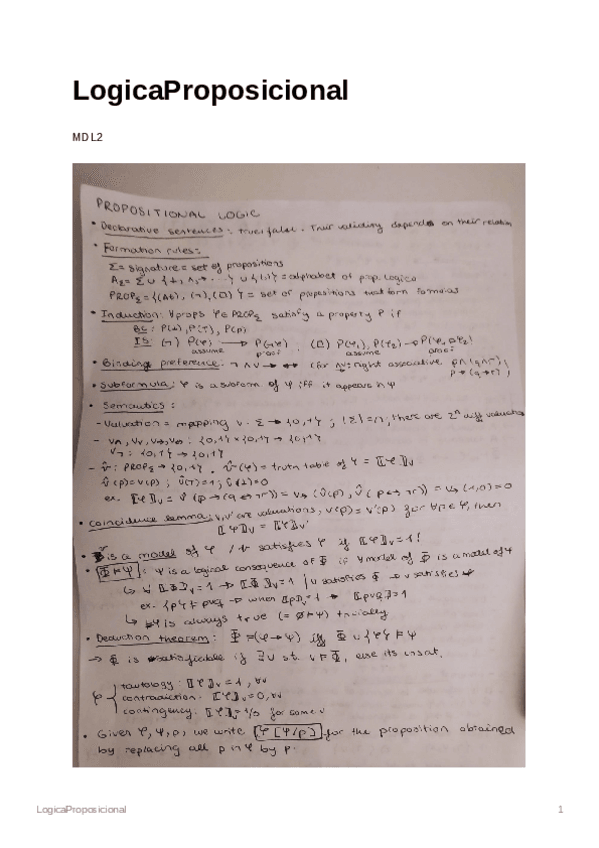 LogicaProposicional
MDL2
PROPOSITIONAL LOGIC
• Declarative sentences: true/false. Their validity depends on their relation
• Formation rules:
Σ = signature = set of propositions
= alphabet of prop. logic
PROP_Σ = {(At), (¬), (□)} = set of propositions that form formulas
• Induction: ∀props φ∈PROP_Σ satisfy a property P if
BC: P(⊥), P(⊤), P(p)
IS: (¬) P(φ) → P(¬φ) . (□) P(φ₁), P(φ₂) → P(φ₁□φ₂)
assume prove assume prove
• Binding preference: ¬ ∧ ∨ → ↔ (for ∧∨: right associative, p∧(q∧r),
p→(q→r),
• Subformula: φ is a subform of ψ iff it appears in ψ
• Semantics:
- Valuation = mapping v: Σ → {0,1} ; |Σ|=n, there are 2ⁿ diff valuations
- v∧, v∨, v→, v↔ : {0,1}×{0,1} → {0,1}
v¬ : {0,1} → {0,1}
- v̂ : PROP_Σ → {0,1} . v̂(φ) = truth table of φ = ⟦φ⟧v
v̂(p) = v(p) ; v̂(⊤)=1 ; v̂(⊥)=0
ex. ⟦φ⟧v = v̂(p→(q↔¬r)) = v→(v̂(p), v̂(
)) = v→(1,0)=0
• Coincidence lemma: v,v' are valuations, v(p) = v'(p) for ∀p∈φ, then
⟦φ⟧v = ⟦φ⟧v'
• v is a model of φ / v satisfies φ if ⟦φ⟧v = 1!
• Φ⊨ψ : ψ is a logical consequence of Φ if ∀model of Φ is a model of ψ
↳ ∀v ⟦Φ⟧v=1 → ⟦ψ⟧v=1 | v satisfies Φ → v satisfies ψ
ex. {p} ⊨ p∨q → when ⟦p⟧v=1 → ⟦p∨q⟧=1
↳ ⊨ψ is always true (= ∅⊨ψ) trivially
• Deduction theorem: Φ ⊨(φ→ψ) iff Φ ∪ {φ} ⊨ ψ
→ Φ is satisfiable if ∃v st. v⊨Φ, else its unsat.
φ { tautology: ⟦φ⟧v = 1, ∀v
contradiction: ⟦φ⟧v=0, ∀v
contingency: ⟦φ⟧v=1/0 for some v
• Given φ, ψ, p, we write φ[ψ/p] for the proposition obtained
by replacing all p in φ by p.
LogicaProposicional 1